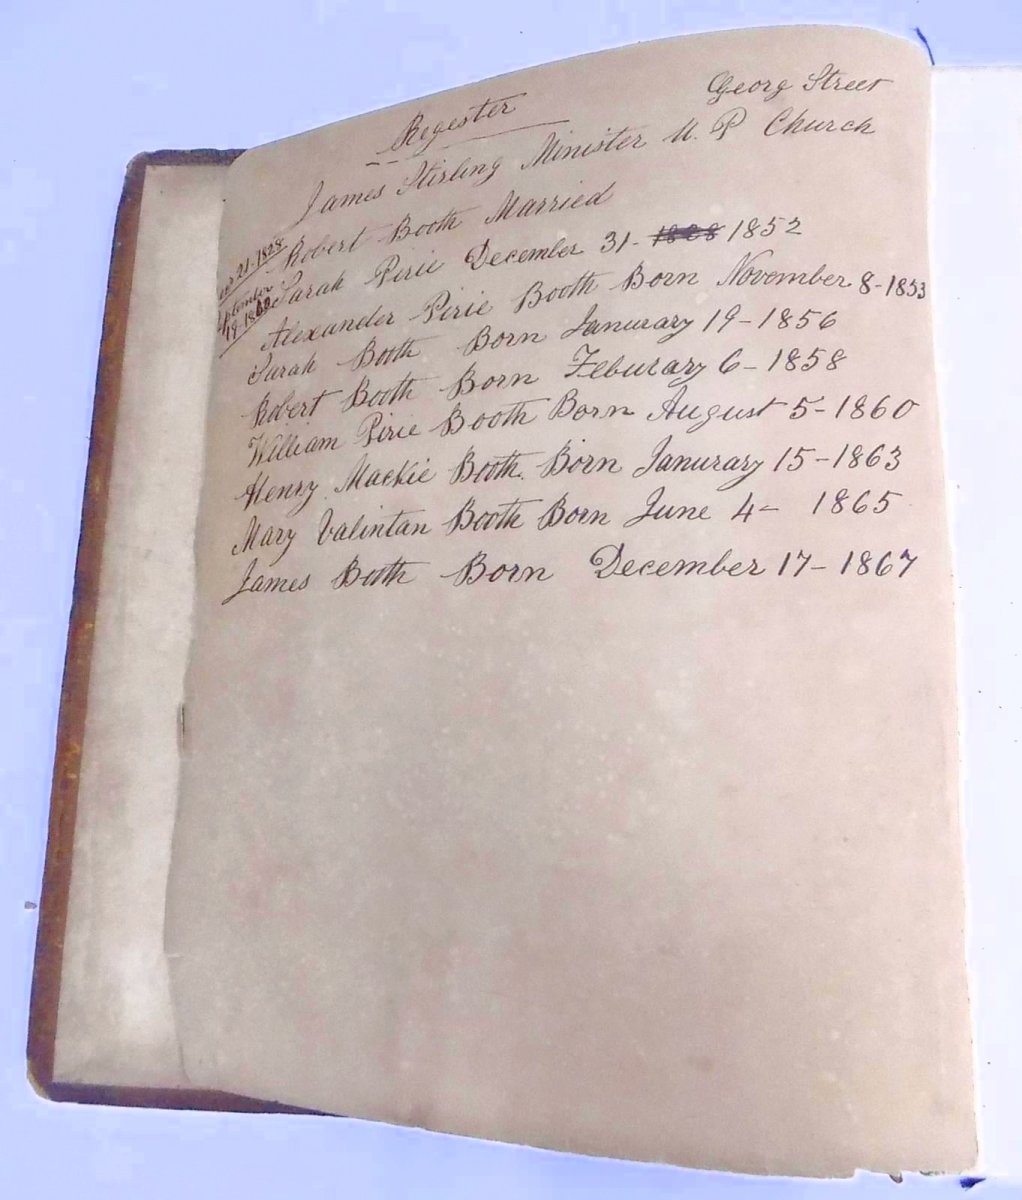 Regester
Georg Street
James Stirling Minister U. P Church
21-1828 Robert Booth Married
Sarah Pirie December 31- 1828 1852
19-18
Alexander Pirie Booth Born November 8-1853
Sarah Booth Born Janurary 19-1856
Robert Booth Born Feburary 6-1858
William Pirie Booth Born August 5-1860
Henry Mackie Booth Born Janurary 15-1863
Mary Valintan Booth Born June 4- 1865
James Booth Born December 17-1867